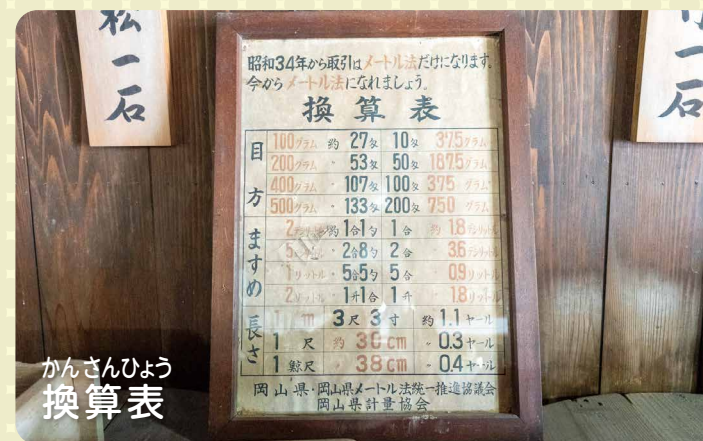 松一石
一石
昭和34年から取引はメートル法だけになります。
今からメートル法になれましょう。
換算表
目方
100グラム 約 27匁 10匁 37.5グラム
200グラム 〃 53匁 50匁 187.5グラム
400グラム 〃 107匁 100匁 375グラム
500グラム 〃 133匁 200匁 750グラム
ますめ
2デシリットル 約 1合1勺 1合 約 1.8デシリットル
5デシリットル 〃 2合8勺 2合 〃 3.6デシリットル
1リットル 〃 5合5勺 5合 〃 0.9リットル
2リットル 〃 1升1合 1升 〃 1.8リットル
長さ
1 m 3尺3寸 約 1.1ヤール
1 尺 約 30cm 〃 0.3ヤール
1 鯨尺 〃 38cm 〃 0.4ヤール
岡山県・岡山県メートル法統一推進協議会
岡山県計量協会
かんさんひょう
換算表